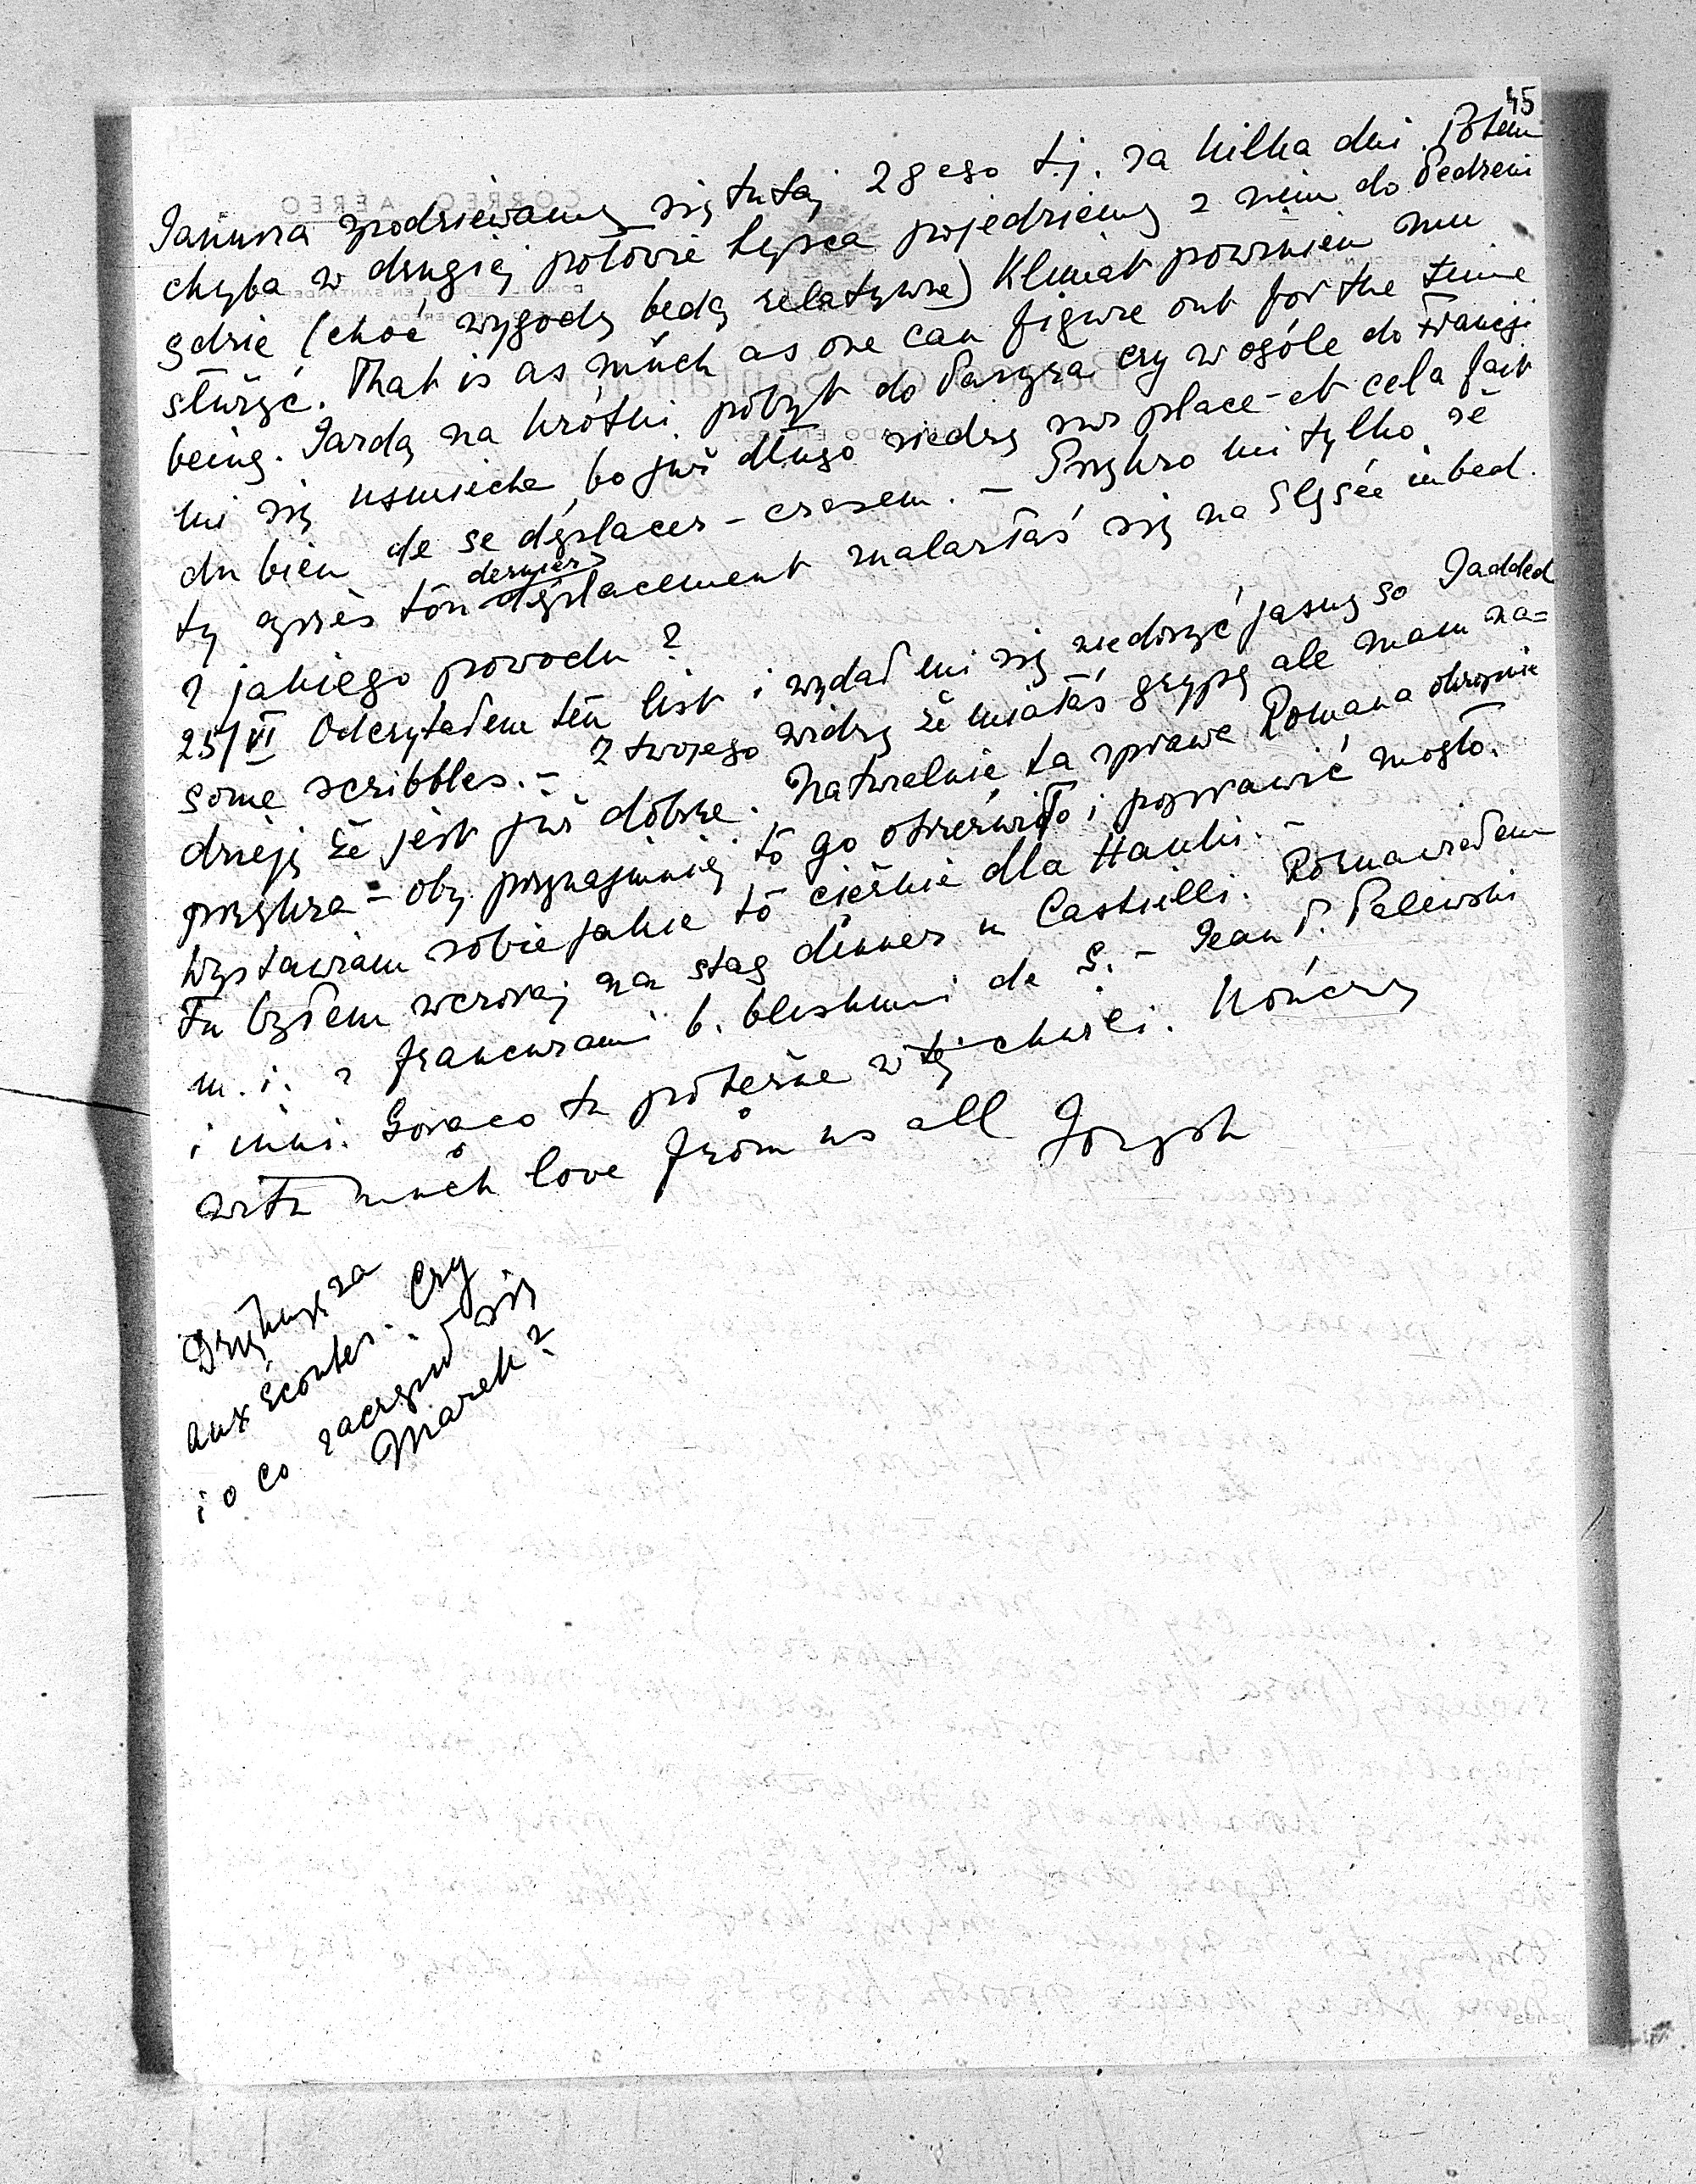 45
Janusza spodziewamy się tutaj 28ego t.j. za kilka dni. Potem
chyba w drugiej połowie lipca pojedziemy z nim do Pedreni
gdzie (choć wygody będą relatywne) klimat powinien mu
służyć. That is as much as one can figure out for the time
being. Jazda na krótki pobyt do Paryża czy w ogóle do Francji
mi się uśmiecha, bo już długo siedzę sur place - et cela fait
du bien de se déplacer - czasem. - Przykro mi tylko że
ty après ton dernier déplacement znalazłaś się na Elysée in bed.
Z jakiego powodu?
25/VI Odczytałem ten list i wydał mi się niedosyć jasny so I added
some scribbles. - Z twojego widzę że miałaś grypę ale mam na=
dzieję że jest już dobrze. Naturalnie ta sprawa Romana okropnie
przykra - oby przynajmniej to go otrzeźwiło i poprawić mogło.
Wystawiam sobie jakie to ciężkie dla Hanki. -
Tu byłem wczoraj na stag dinner u Castielli. Rozmawiałem
m. i. z francuzami b. bliskimi de G. - Jean P. Palewski
i inni. Gorąco tu potężne w tej chwili. Kończę
with much love from us all Józych
Dziękuję za
aux Ecoutes. Czy
i o co zaczepił się
Marek?
CORREO AEREO
Banco de Santander